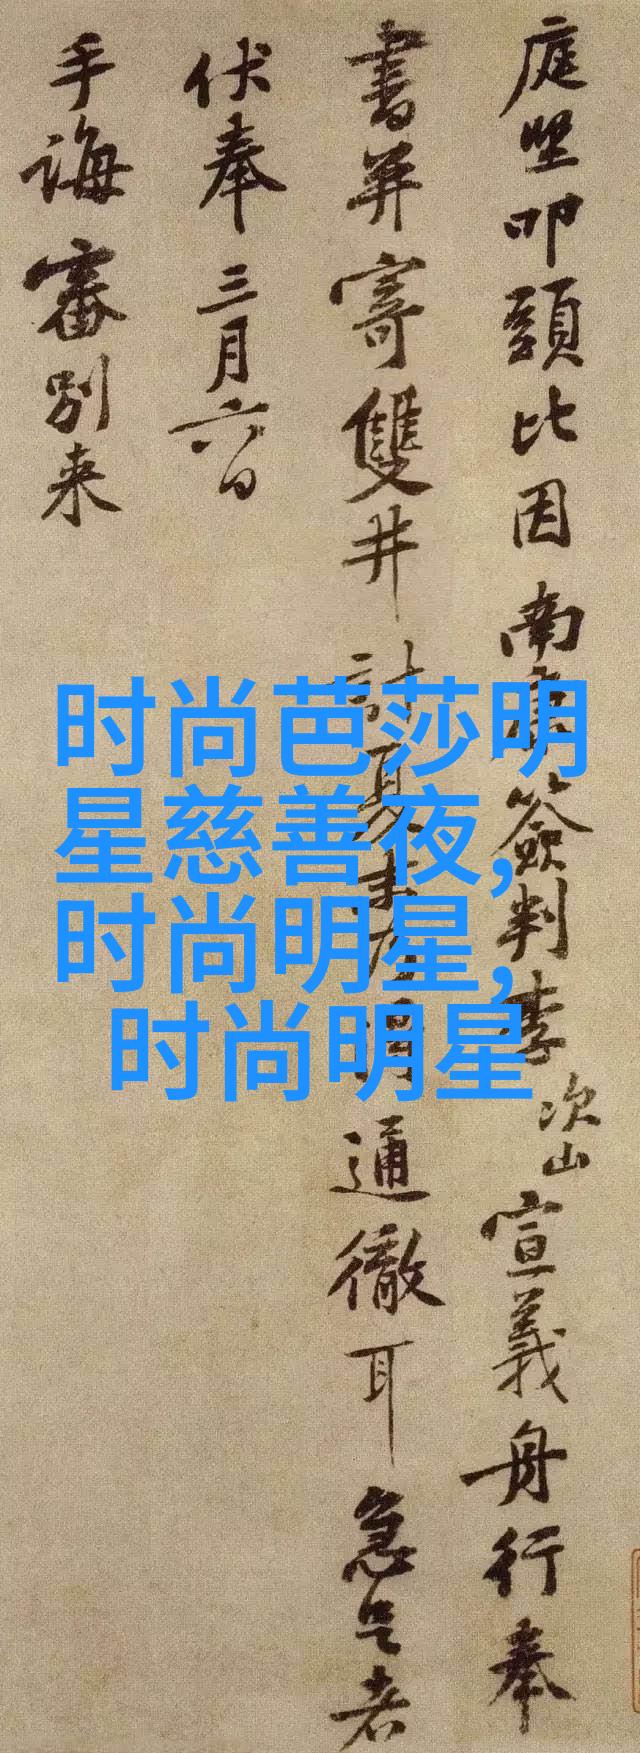 庭堅叩頭比因南康簽判李次山宣義舟行奉
書并寄雙井計夏末通徹耳急足者
伏奉三月六日
手誨審別来
时尚芭莎明
星慈善夜,
时尚明星,
时尚明星